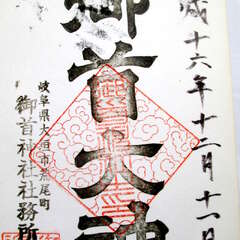 歳十六年十二月十一日
御首大神
岐阜県大垣市荒尾町
御首神社社務所